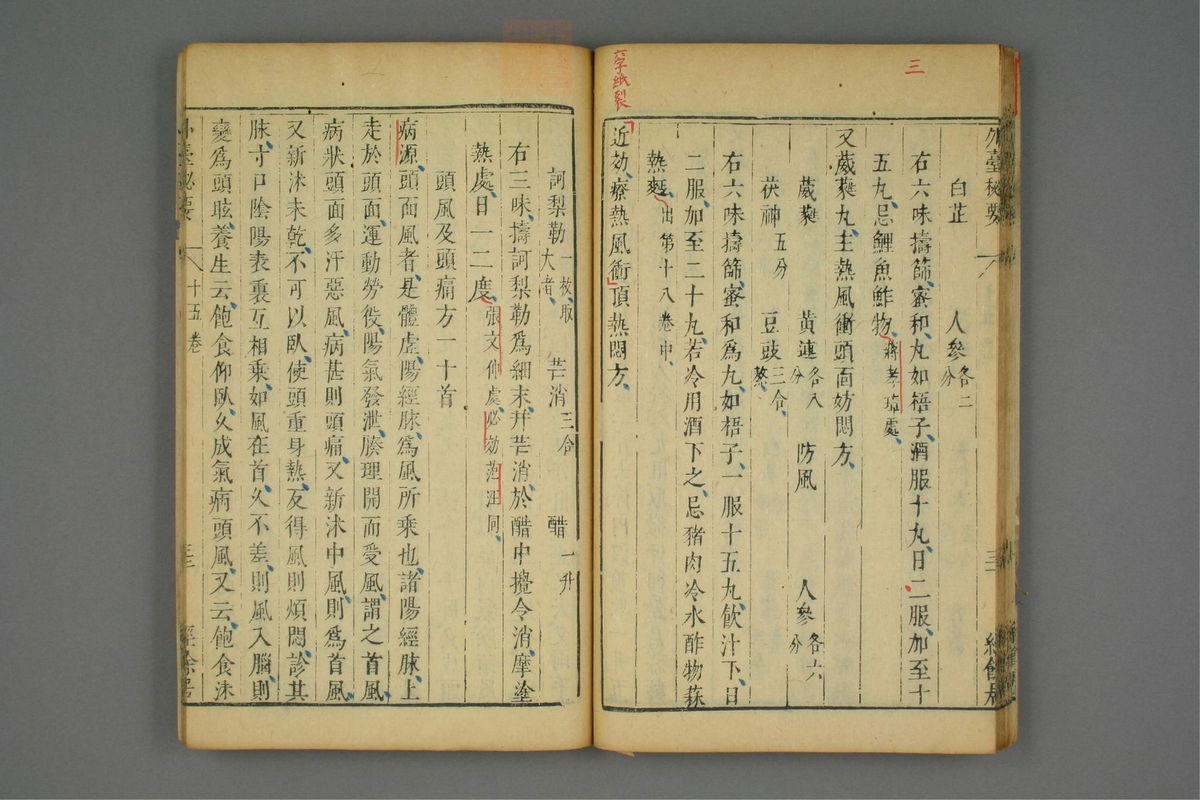 三
六字紙裂
外臺秘要
白芷 人參各二分
右六味擣篩蜜和丸如梧子酒服十丸日二服加至十
五丸忌鯉魚鮓物蔣孝琬處
又葳蕤丸主熱風衝頭面妨悶方
葳蕤 黃連各八分 防風 人參各六分
茯神五分 豆豉三合熬
右六味擣篩蜜和爲丸如梧子一服十五丸飲汁下日
二服加至二十丸若冷用酒下之忌豬肉冷水酢物蒜
熱麪出第十八卷中
近効療熱風衝頂熱悶方
訶梨勒一枚取大者 芒消三合 醋一升
右三味擣訶梨勒爲細末幷芒消於醋中攪令消摩塗
熱處日一二度張文仲處必効范汪同
頭風及頭痛方一十首
病源頭面風者是體虛陽經脉爲風所乘也諸陽經脉上
走於頭面運動勞役陽氣發泄腠理開而受風謂之首風
病狀頭面多汗惡風病甚則頭痛又新沐中風則爲首風
又新沐未乾不可以臥使頭重身熱反得風則煩悶診其
脉寸口陰陽表裏互相乘如風在首久不差則風入腦則
變爲頭眩養生云飽食仰臥久成氣病頭風又云飽食沐
十五卷
經餘居